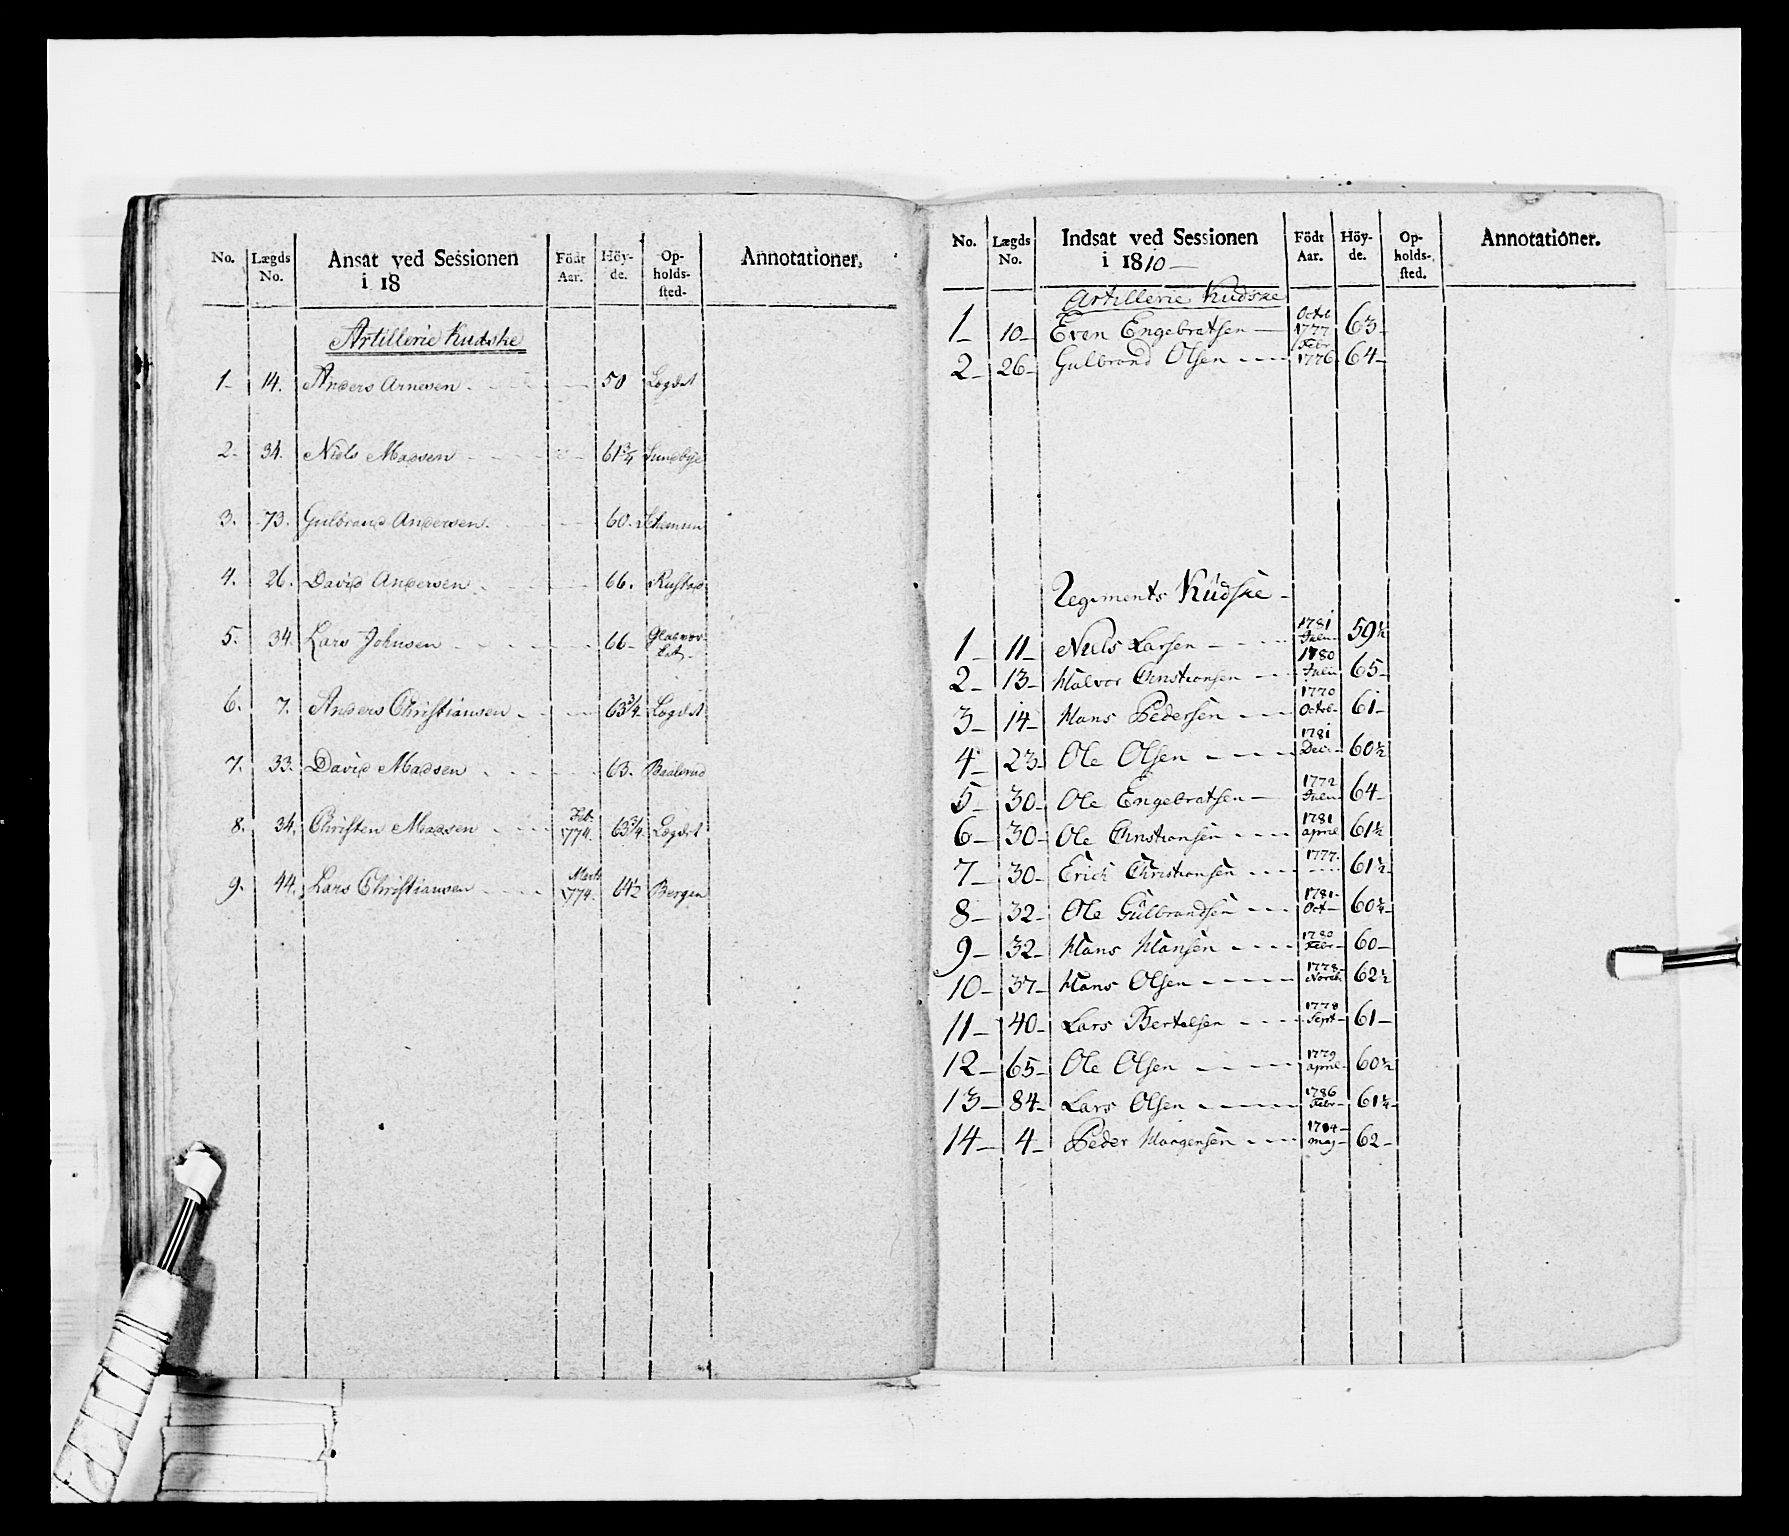 No. Lægds No. Ansat ved Sessionen i 18 Födt Aar. Höyde. Opholdssted. Annotationer.
Artillerie Kudske
1- 14. Anders Arnesen 50 Legdet
2. 34. Niels Madsen 61 3/4 Sundbye
3. 73. Gulbrand Andersen 60.
4. 26. David Andersen 66. Rustad
5. 34. Lars Johnsen 66-
6. 7. Anders Christiansen 63 3/4 Legdet
7. 33. David Madsen 63.
8. 34. Christen Madsen Feb. 1774. 63 3/4 Legdet
9. 44. Lars Christiansen Marts 1774. 64 1/2 Bergen
No. Lægds No. Indsat ved Sessionen i 1810 Födt Aar. Höyde. Opholdssted. Annotationer.
Artillerie Kudske
1- 10- Even Engebratsen Octbr 1777 63-
2- 26- Gulbrand Olsen Febr 1776 64-
Regiments Küdske
1- 11- Niels Larsen 1781 59 1/2
2- 13- Halvor Christiansen 1780 65-
3- 14- Hans Pedersen 1770 Octbr 61-
4- 23- Ole Olsen 1781 60 1/2
5- 30- Ole Engebratsen 1772 64-
6- 30- Ole Christiansen 1781 april 61 1/2
7- 30- Erich Christiansen 1777. 61 1/2
8- 32- Ole Gülbrandsen 1781 Oct 60 3/4
9- 32- Hans Hansen 1780 Febr 60-
10- 37- Hans Olsen 1778 Novb 62 1/2
11- 40- Lars Bertelsen 1778 Sept 61-
12- 65- Ole Olsen 1779 april 60 1/2
13- 84- Lars Olsen 1786 Febr 61 1/2
14- 4- Peder maj 62-